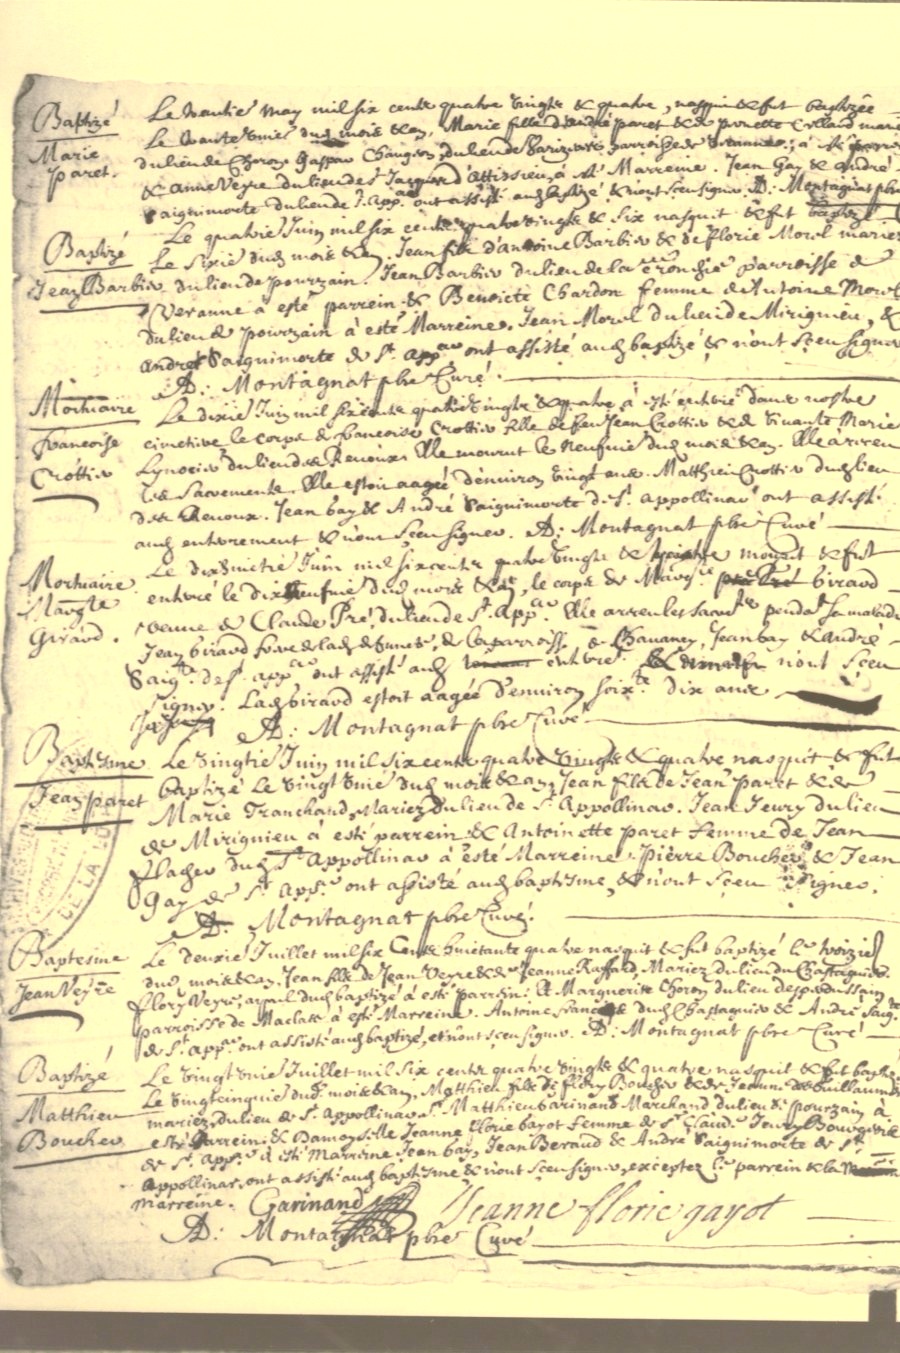 Baptizé
Marie
paret.
Le trantie may mil six cents quatre vingts & quatre, nasquit & fut baptizée
Le dud mois & an, Marie fille d'andré paret & de pernette marie
du lieu de Choron Gaspar du lieu de parroisse de à
& Anne Veyre du lieu des à Marreine. Jean Gay & André
Saignimorte du lieu de S. App. ont assisté aud baptizé & n'ont sceu signer A: Montagnat pbre
Baptizé
Jean Barbier
Le quatrie Juin mil six cents quatre vingts & six nasquit & fut baptizé
Le sixie dud mois & an Jean fils d'antoine Barbier & de florie Morel mariez
du lieu de pourzain. Jean Barbier du lieu de la parroisse de
Veranne à esté parrein & Benoicte Chardon femme de Antoine Morel
du lieu de pourzain à esté Marreine. Jean Morel du lieu de Mirigneu, &
André Saignimorte de St. app. ont assisté aud baptizé & n'ont sceu signer
A: Montagnat pbre Curé.
Mortuaire
francoise
Crottier
Le dixie Juin mil six cents quatre vingts & quatre à esté enterré dans nostre
cimetiere le corps de francoise Crottier fille de feu Jean Crottier & de vivante Marie
du lieu de Renoux. Elle mourut le neufvie dud mois & an. Elle a receu
les Sacrements. Elle estoit aagée d'environ vingt ans. Matthieu Crottier dud lieu
de Renoux. Jean Gay & André Saignimorte de St. appollinar ont assisté
aud enterrement & n'ont sceu signer. A: Montagnat pbre Curé
Mortuaire
Margte
Giraud.
Le dixhuictie Juin mil six cents quatre vingts & quatre mourut & fut
enterré le dixneufvie dud mois & an, le corps de Margte Giraud
vefve de Claude Pré, du lieu de St. App. Elle a receu les sacrts pendt sa maladie
Jean Giraud frere de lad defunte, de la parroisse de Chavaney, Jean Gay & André
Saig. de St. app. ont assisté aud enterré n'ont sceu
signer. Lad Giraud estoit aagée d'environ soixte dix ans
A: Montagnat pbre Curé
Baptesme
Jean paret
Le vingtie Juin mil six cents quatre vingts & quatre nasquit & fut
baptizé Le vingt vnie dud mois & an, Jean fils de Jean paret & de
Marie Tranchand, Mariez du lieu de St. Appollinar. Jean Jeury du lieu
de Mirigneu à esté parrein & Antoinette paret femme de Jean
flacher dud St Appollinar à esté Marreine. Pierre Boucher & Jean
Gay de St. App. ont assisté aud baptisme, & n'ont sceu signer.
A. Montagnat pbre Curé.
Baptesme
Jean Veyre
Le deuxie Juillet mil six Cents huictante quatre nasquit & fut baptizé le
dud mois & an. Jean fils de Jean Veyre & de Jeanne Raffard, Mariez du lieu du Chastagnier.
flory Veyre, ayeul dud baptizé à esté parrein. & Marguerite Choron du lieu
parroisse de Maclas à esté Marreine. Antoine dud Chastagnier & André Saig.
de St. app. ont assisté aud baptizé, et n'ont sceu signer. A: Montagnat pbre Curé
Baptizé
Matthieu
Boucher
Le vingt vnie Juillet mil six cents quatre vingts & quatre nasquit & fut baptizé
Le vingtcinquie dud mois & an, Matthieu fils de fleury Boucher & de Jeanne Guillaumon
mariez, du lieu de St. Appollinar. Sr. Matthieu Garinand Marchand du lieu de pourzain à
esté parrein, & Damoyselle Jeanne florie Gayot femme de Sr. Claude Jeury Bourgeois
de St. App. à esté Marreine Jean Gay, Jean Beraud & André Saignimorte de St.
Appollinar, ont assisté aud baptisme & n'ont sceu signer, exceptez le parrein & la
marreine. Garinand Jeanne florie gayot
A: Montagnat pbre Curé